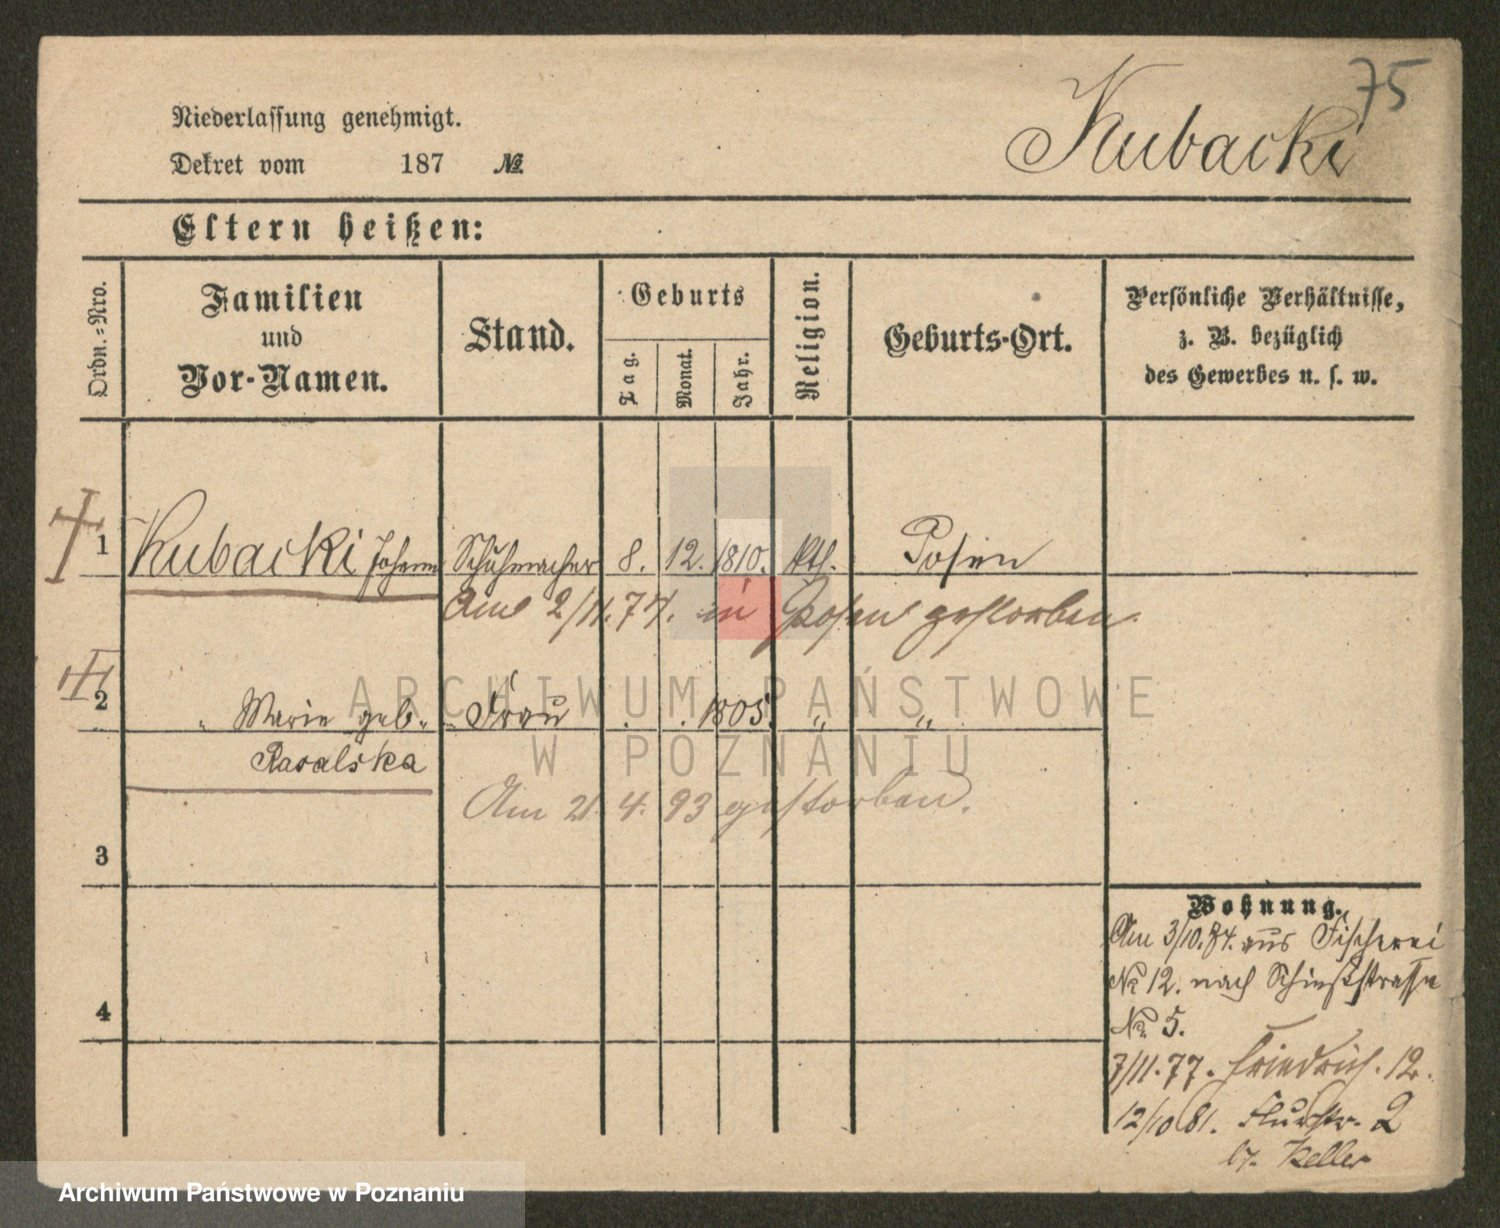 75
Niederlassung genehmigt.
Kubacki
Dekret vom 187 №
Eltern heißen:
Ordn.=Nro.
Familien
und
Vor-Namen.
Stand.
Geburts
Tag.
Monat.
Jahr.
Religion.
Geburts-Ort.
Persönliche Verhältnisse,
z. B. bezüglich
des Gewerbes u. s. w.
1 Kubacki Johann Schuhmacher 8. 12. 1810. Kth. Posen
Am 2/11.74. in Posen gestorben.
2 " Marie geb. Frau . . 1805. " "
Am 21. 4. 93 gestorben.
3
4
Wohnung.
Am 3/10.74. aus Fischerei
№ 12. nach Schießstrasse
№ 5.
7/11.77. Friedrich. 12.
12/10 81. Flurstr. 2
b. Keller
ARCHIWUM PAŃSTWOWE
W POZNANIU
Archiwum Państwowe w Poznaniu